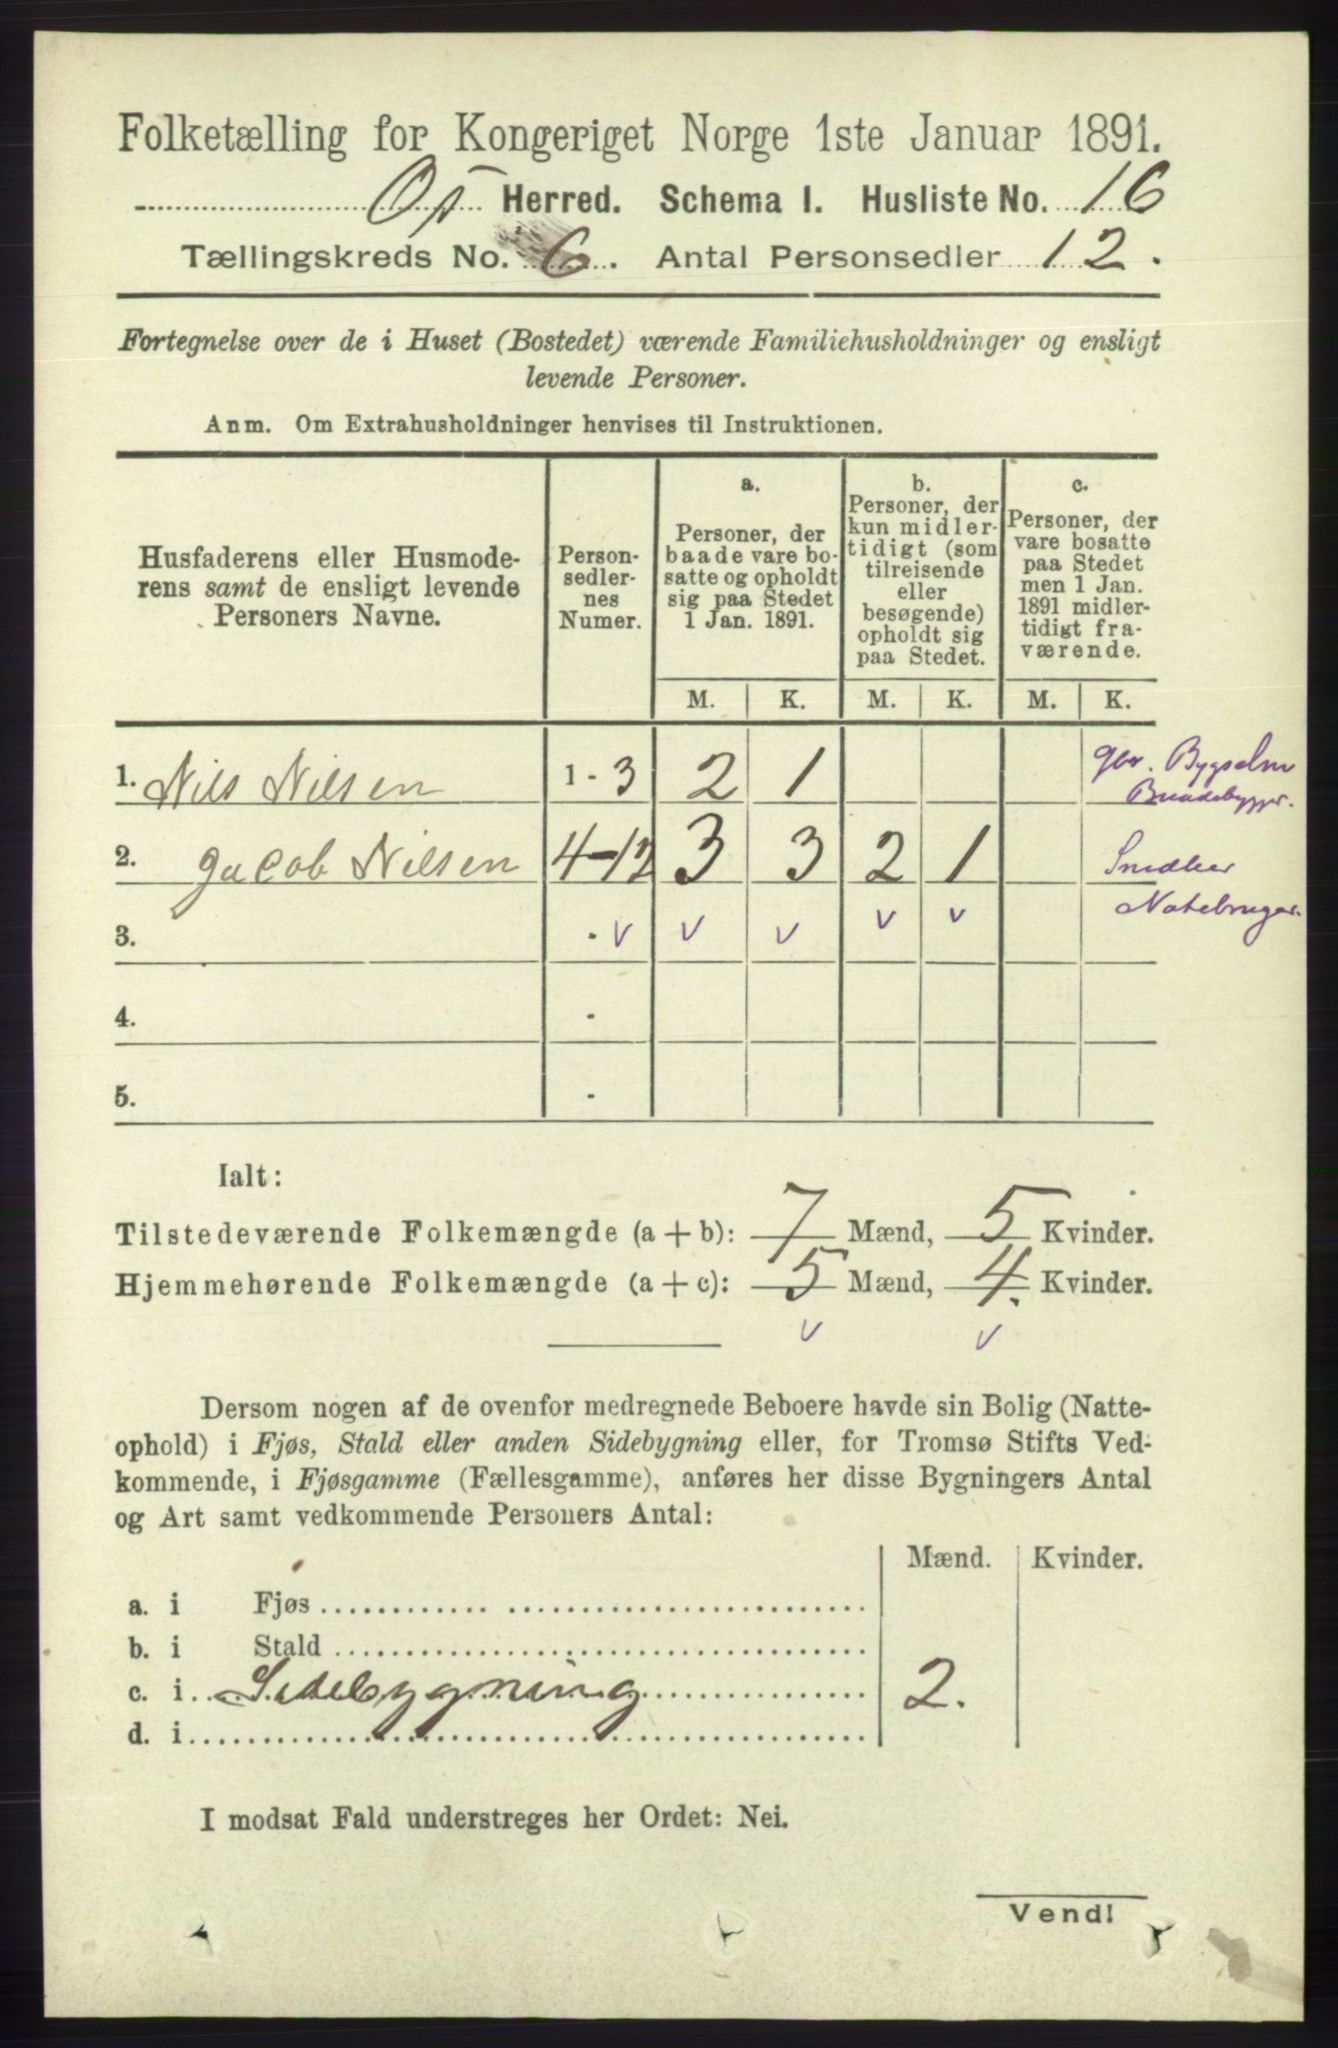 Folketælling for Kongeriget Norge 1ste Januar 1891.
Os Herred. Schema I. Husliste No. 16
Tællingskreds No. 6. Antal Personsedler 12.
Fortegnelse over de i Huset (Bostedet) værende Familiehusholdninger og ensligt
levende Personer.
Anm. Om Extrahusholdninger henvises til Instruktionen.
Husfaderens eller Husmode-
rens samt de ensligt levende
Personers Navne.
Person-
sedler-
nes
Numer.
a.
Personer, der
baade vare bo-
satte og opholdt
sig paa Stedet
1 Jan. 1891.
b.
Personer, der
kun midler-
tidigt (som
tilreisende
eller
besøgende)
opholdt sig
paa Stedet.
c.
Personer, der
vare bosatte
paa Stedet
men 1 Jan.
1891 midler-
tidigt fra-
værende.
M. K. M. K. M. K.
1. Nils Nilsen 1 - 3 2 1
2. Jacob Nilsen 4-12 3 3 2 1
Snedker
Notebruger.
3. - v v v v v
4. -
5. -
Ialt:
Tilstedeværende Folkemængde (a + b): 7 Mænd, 5 Kvinder.
Hjemmehørende Folkemængde (a + c): 5 Mænd, 4. Kvinder.
v v
Dersom nogen af de ovenfor medregnede Beboere havde sin Bolig (Natte-
ophold) i Fjøs, Stald eller anden Sidebygning eller, for Tromsø Stifts Ved-
kommende, i Fjøsgamme (Fællesgamme), anføres her disse Bygningers Antal
og Art samt vedkommende Personers Antal:
Mænd. Kvinder.
a. i Fjøs
b. i Stald
c. i Sidebygning 2.
d. i
I modsat Fald understreges her Ordet: Nei.
Vend!